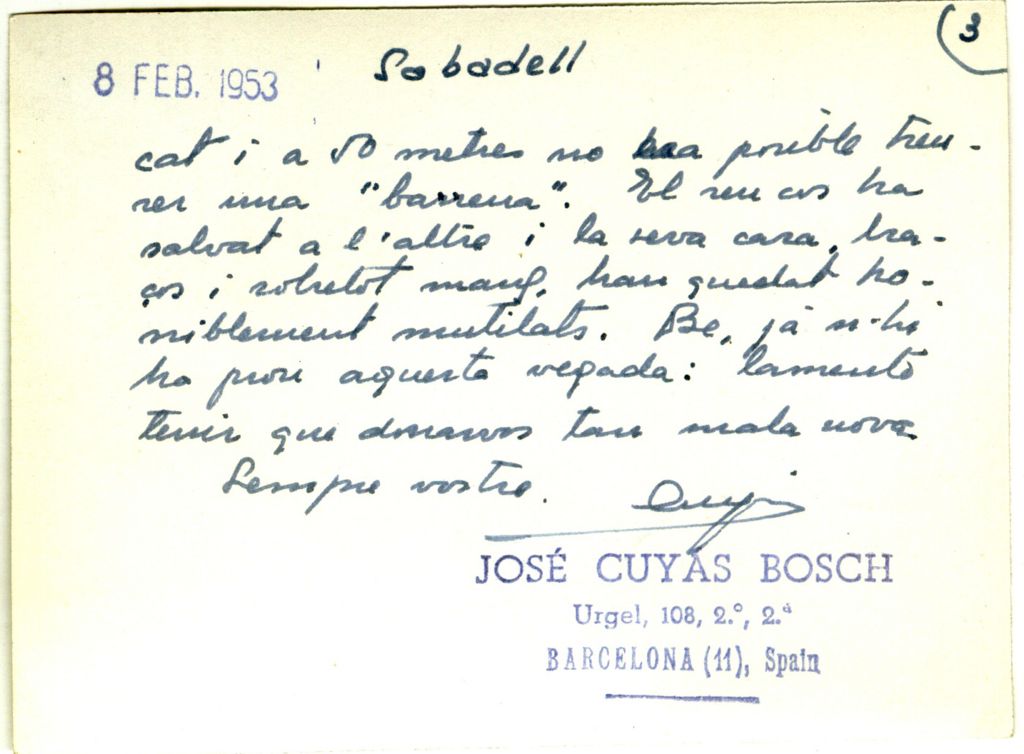 (3
8 FEB. 1953
Sabadell
cat i a 50 metres no era posible treu-
rer una "barrena". El seu cos ha
salvat a l'altre i la seva cara, bra-
ços i sobretot mans, han quedat ho-
rriblement mutilats. Be, jà n-hi
ha prou aquesta vegada: lamento
tenir que donarvos tan mala nova
Sempre vostre.
JOSÉ CUYÁS BOSCH
Urgel, 108, 2.º, 2.ª
BARCELONA (11), Spain